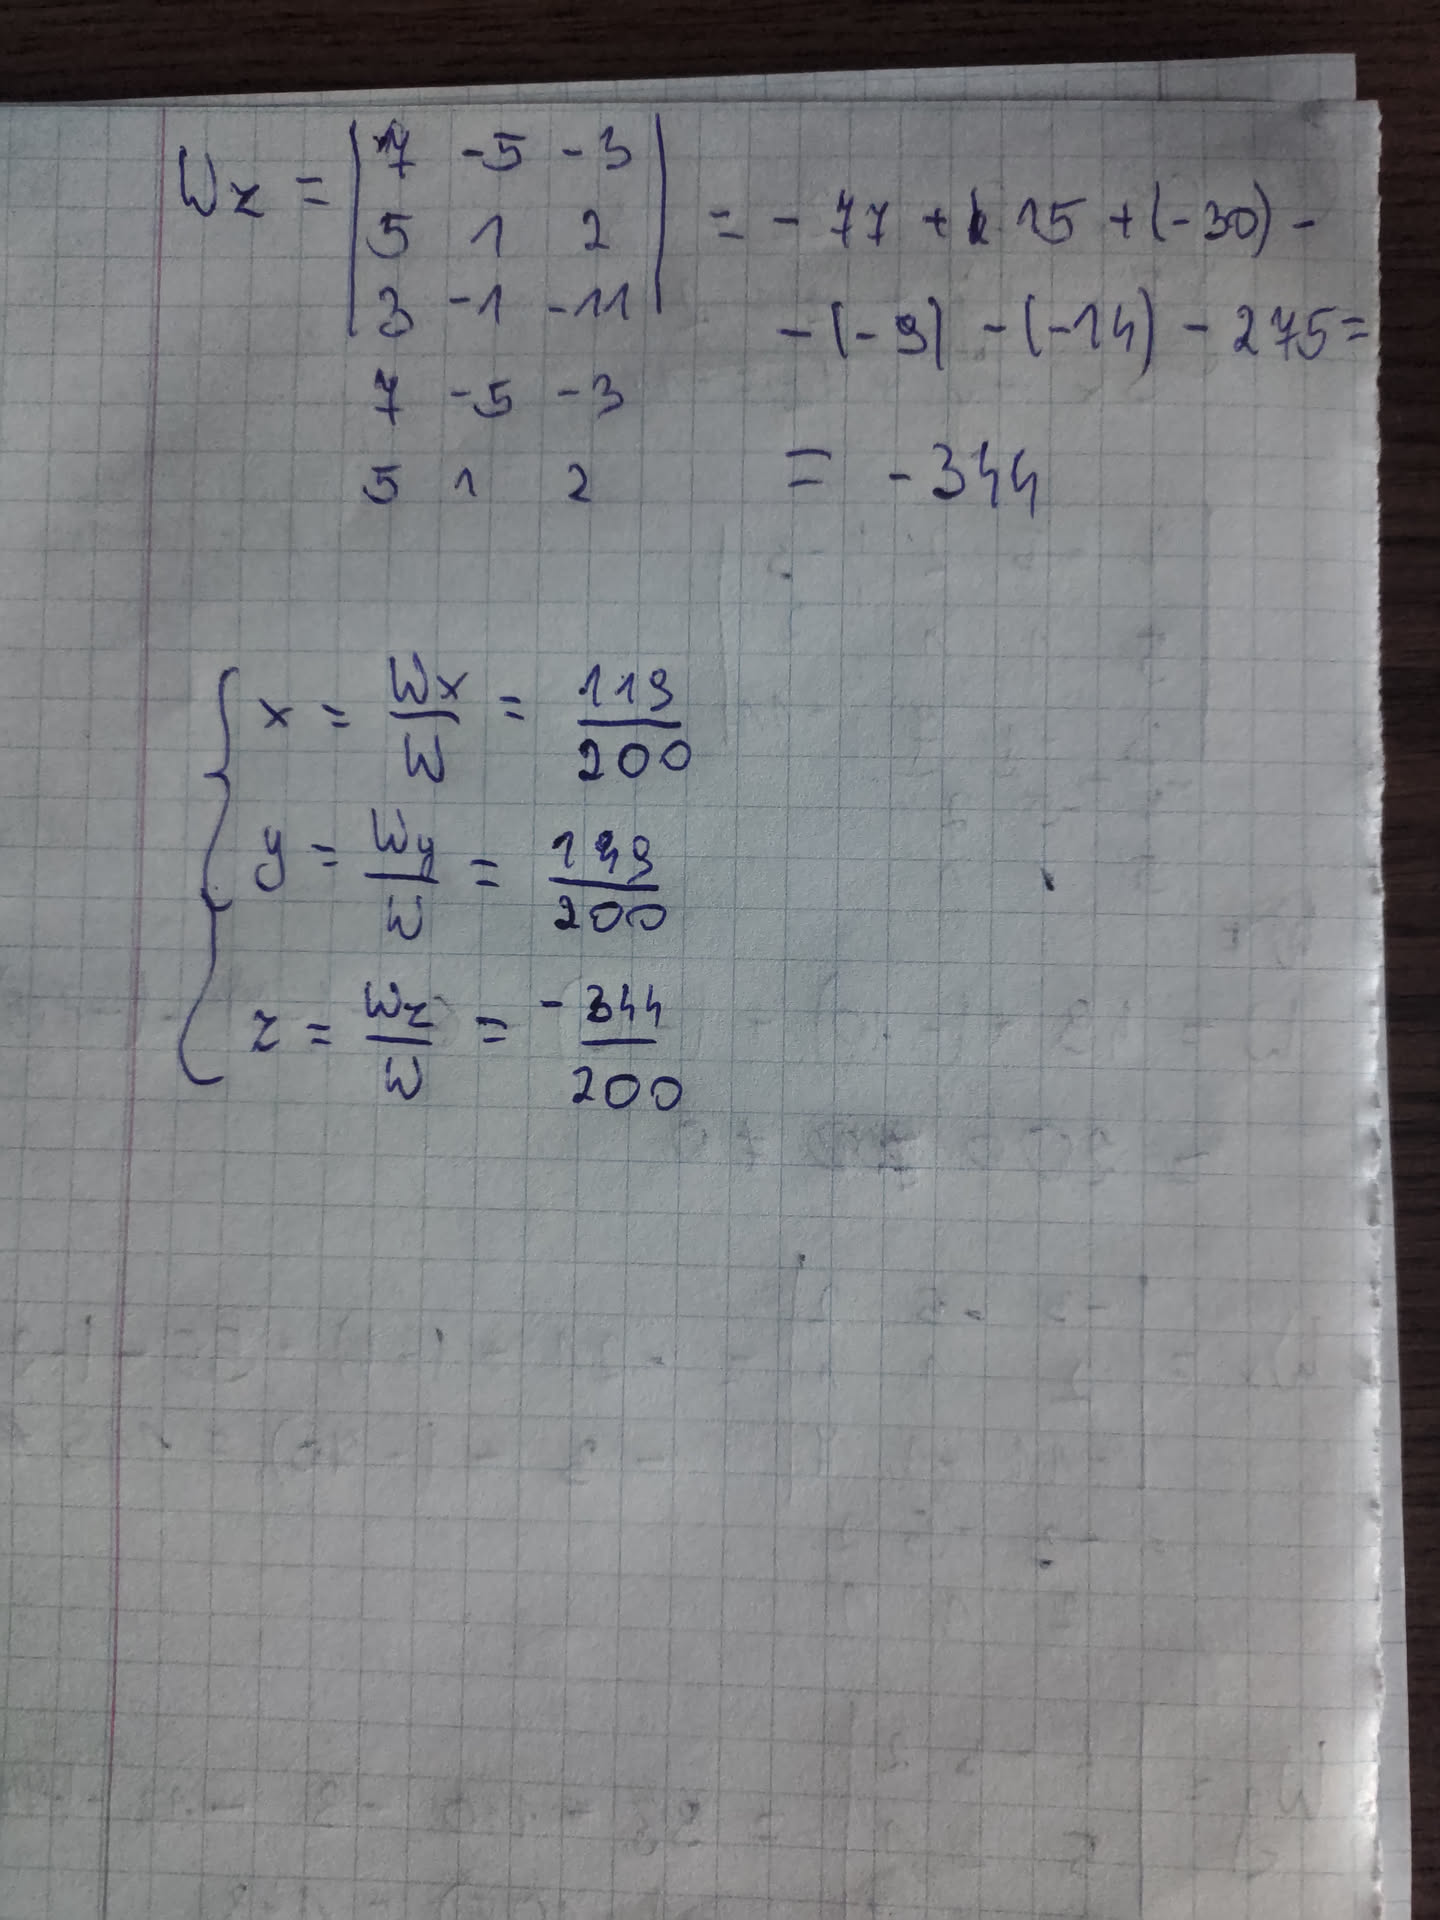 Wz = | 7 -5 -3 |
| 5 1 2 | = - 77 + 15 + (-30) -
| 3 -1 -11 | - (-9) - (-14) - 275 =
7 -5 -3
5 1 2 = -344
x = Wx/W = 119/200
y = Wy/W = 149/200
z = Wz/W = -344/200